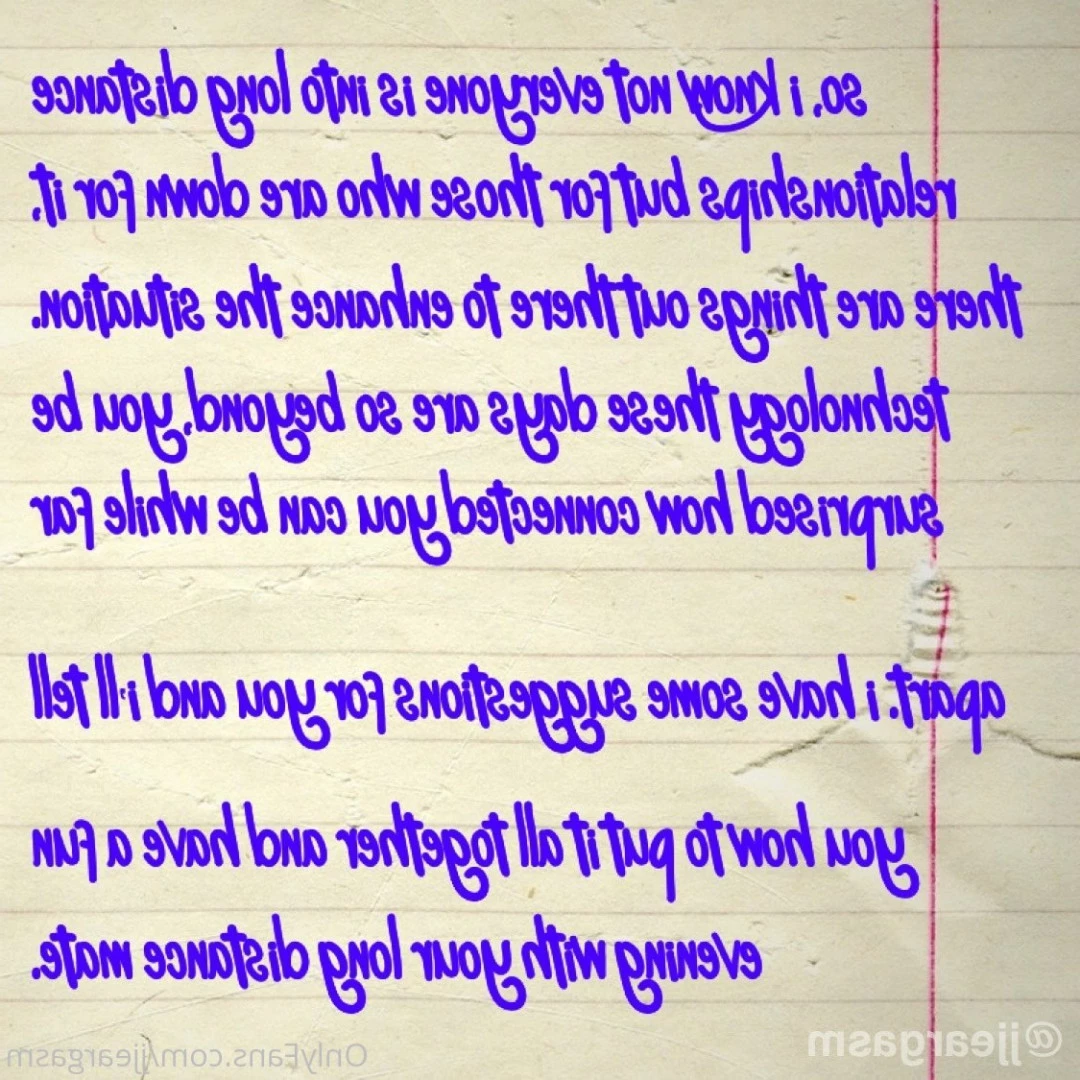 so, i know not everyone is into long distance
relationships but for those who are down for it,
there are things out there to enhance the situation.
technology these days are so beyond, you be
surprised how connected you can be while far
apart. i have some suggestions for you and i'll tell
you how to put it all together and have a fun
evening with your long distance mate.
@jjeargasm
OnlyFans.com/jjeargasm